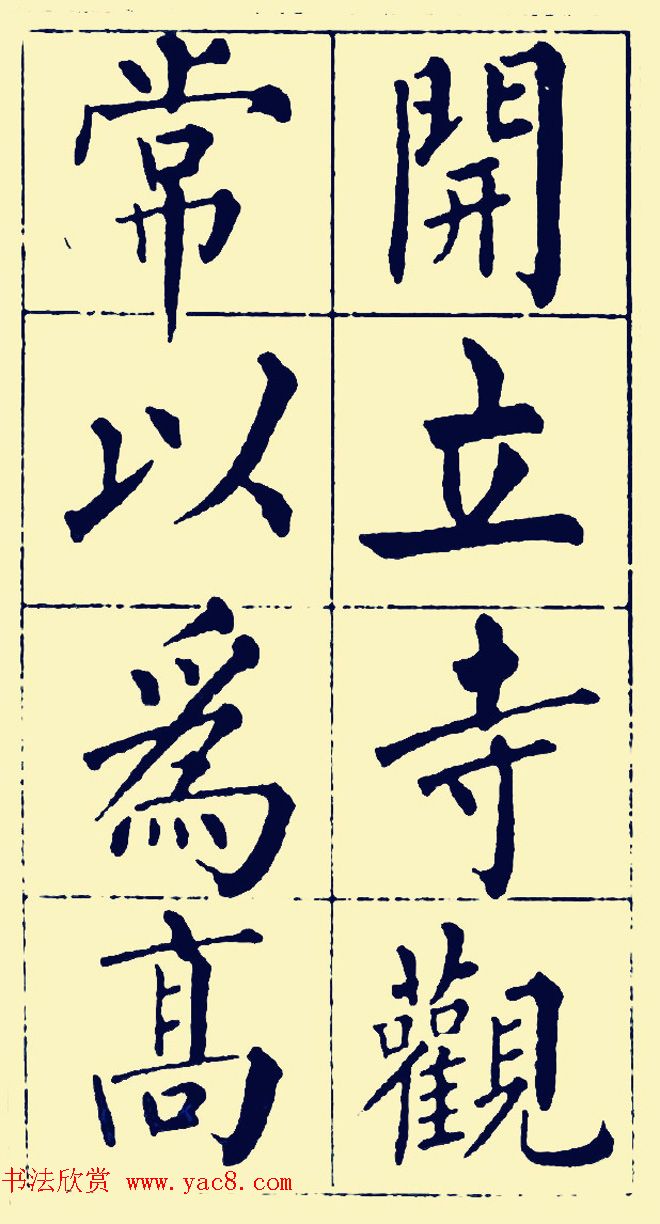 開立寺觀
常以爲髙
书法欣赏 www.yac8.com